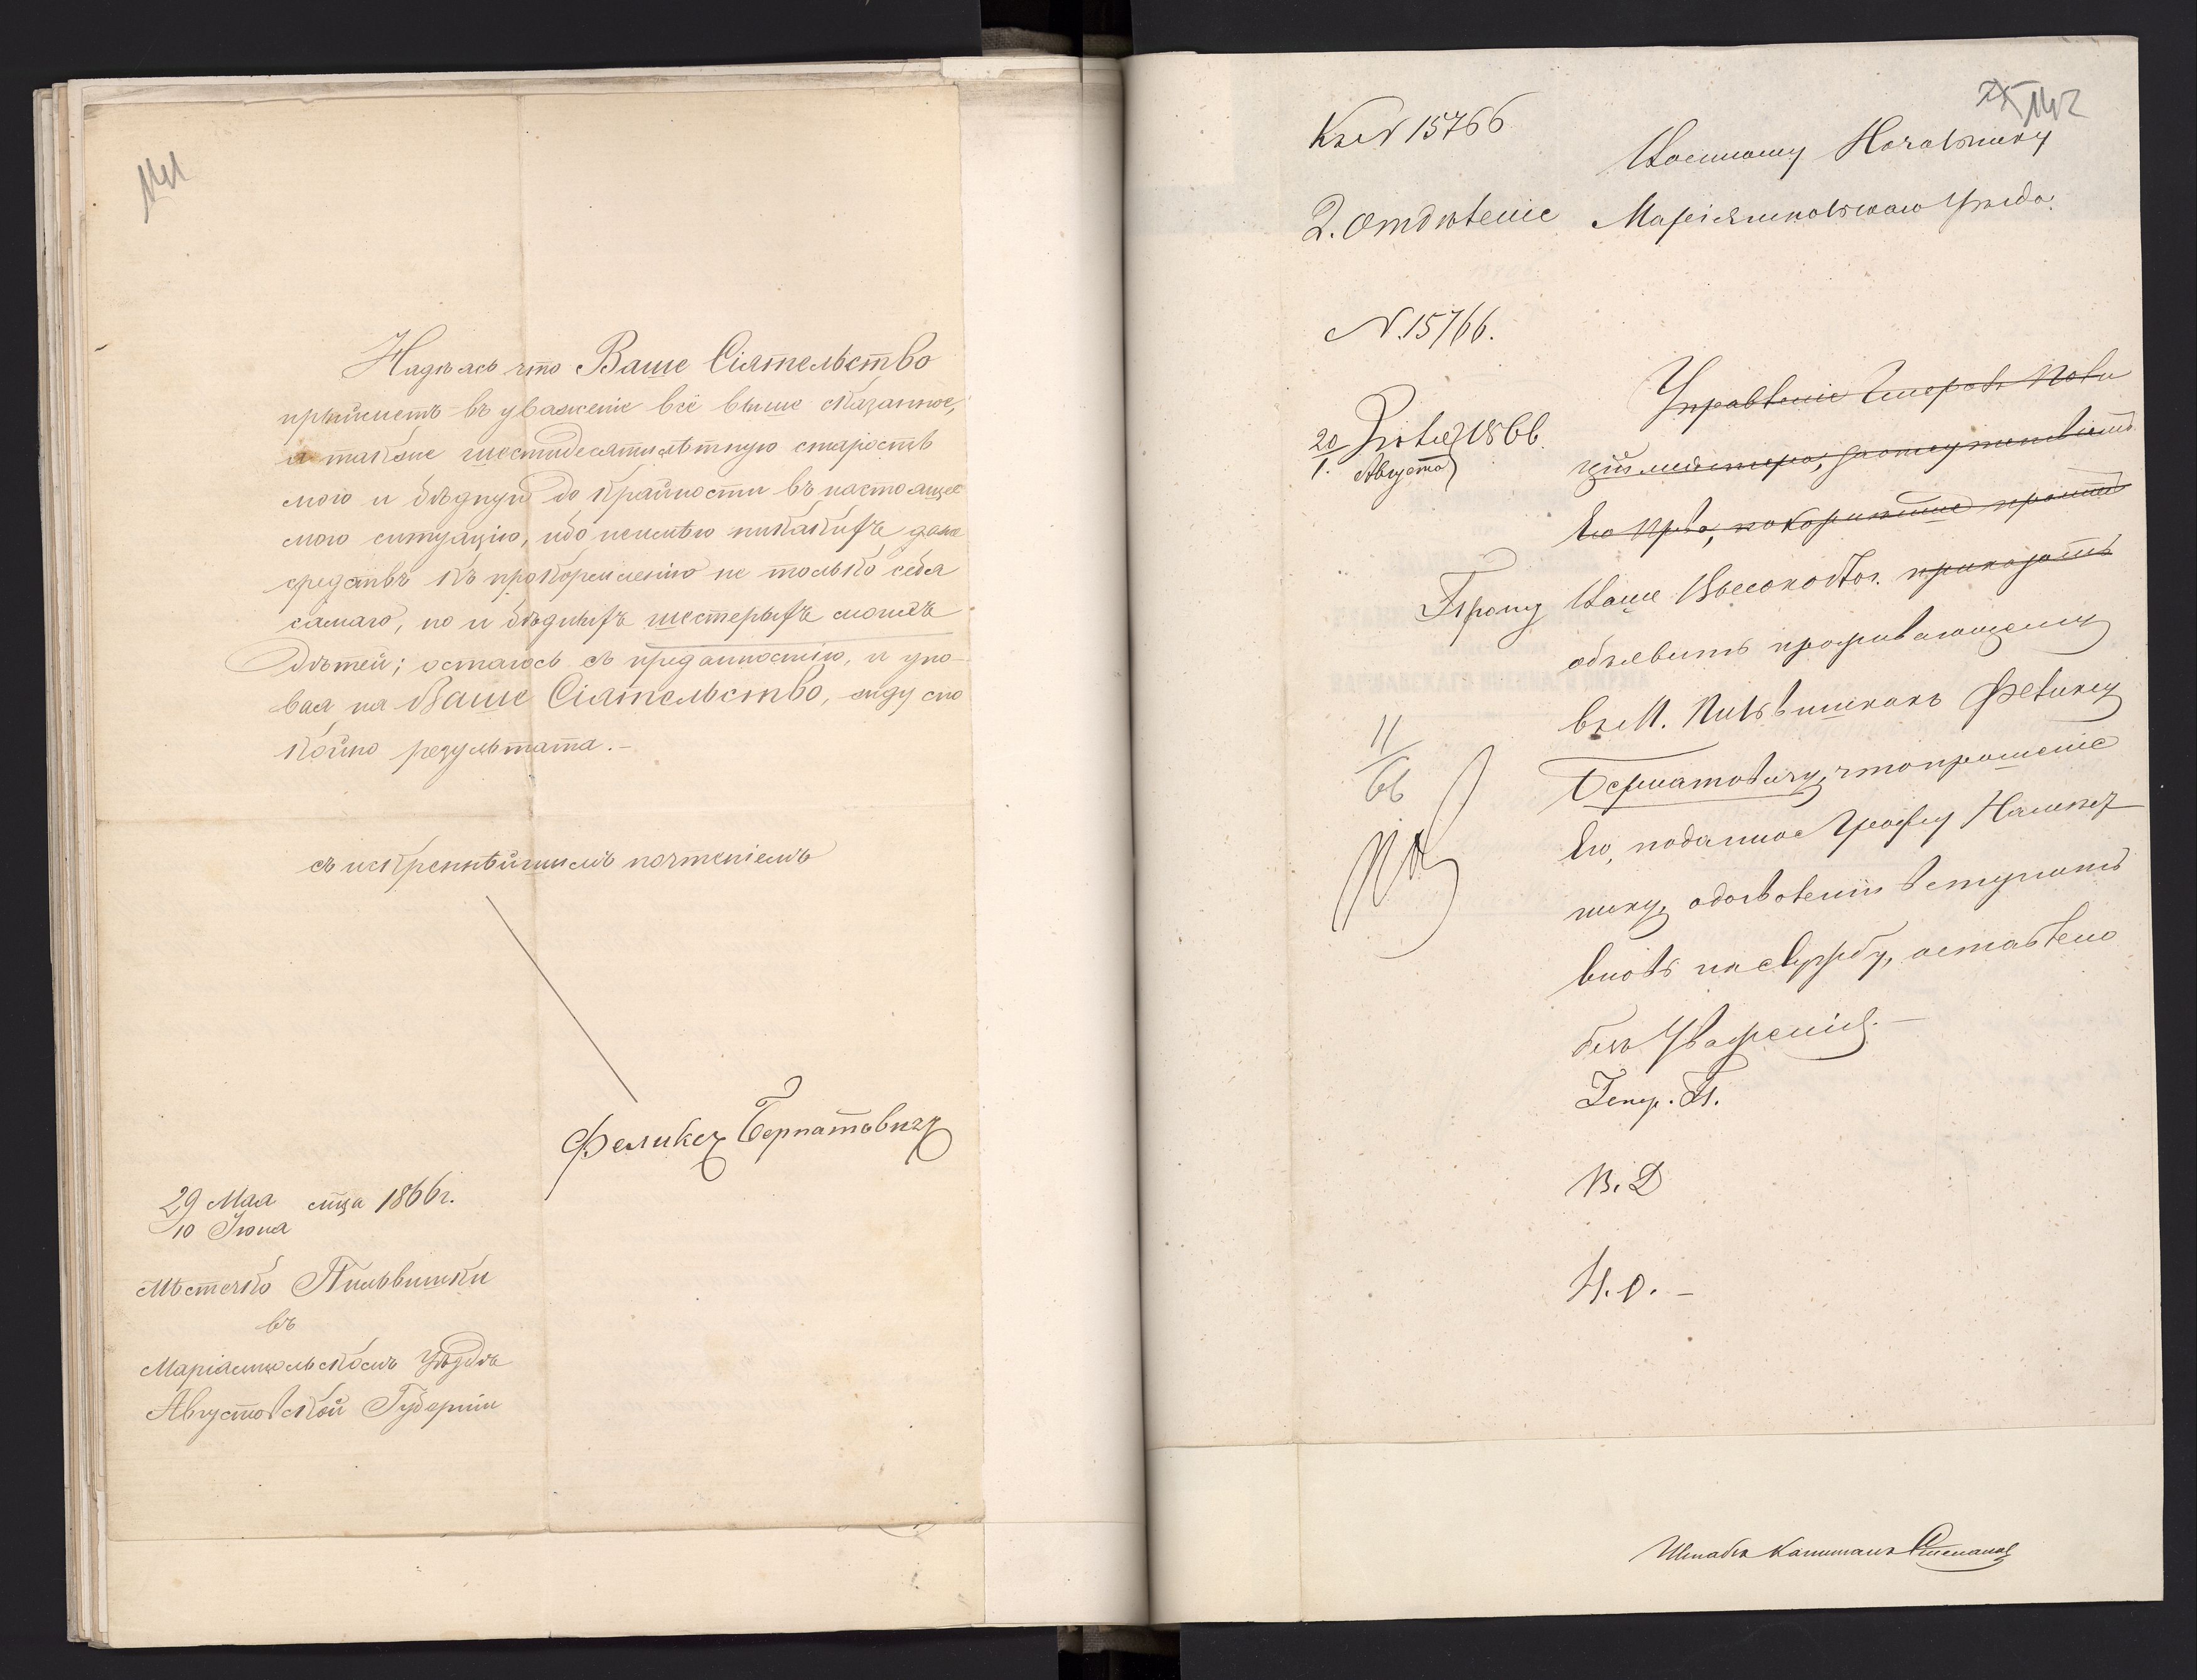 141
Надѣясь что Ваше Сіятельство
прыйметъ въ уваженіе всё выше сказанное,
а также шестидесятилѣтную старость
мою и бѣдную до крайности въ настоящее
мою ситуацію, ибо неимѣю никакихъ даже
средствъ къ прокормленію не только себя
самаго, но и бѣдныхъ шестерыхъ моихъ
дѣтей; остаюсь съ преданностію, и упо-
вая на Ваше Сіятельство, жду спо
койно результата.-
съ искреннѣйшимъ почтеніемъ
Феликсъ Бернатовичъ
29 Мая мца 1866г.
10 Іюня
Мѣстечко Пильвишки
въ
Маріампольскомъ уѣздѣ
Августовской Губерніи
142
Къ N 15766
Военному Начальнику
2. Отдѣленіе
Маріямпольскаго Уѣзда.
N. 15766.
Управленіе Генералъ Поли
20 Іюля 1866.
1. Августа
ційместера, за отсутствіемъ
Его Пр-ва, покорнѣйше проситъ
Прошу Ваше Высокоблг. приказать
объявить проживающему
въ М. Пильвишкахъ Феликсу
Бернатовичу, что прошеніе
Его, поданное Графу Намѣст
нику, о дозволеніи вступить
вновь на службу, оставлено
безъ Уваженія.-
11
66
Генер. П.
В. Д
Н. О. -
Штабсъ Капитанъ Степановъ